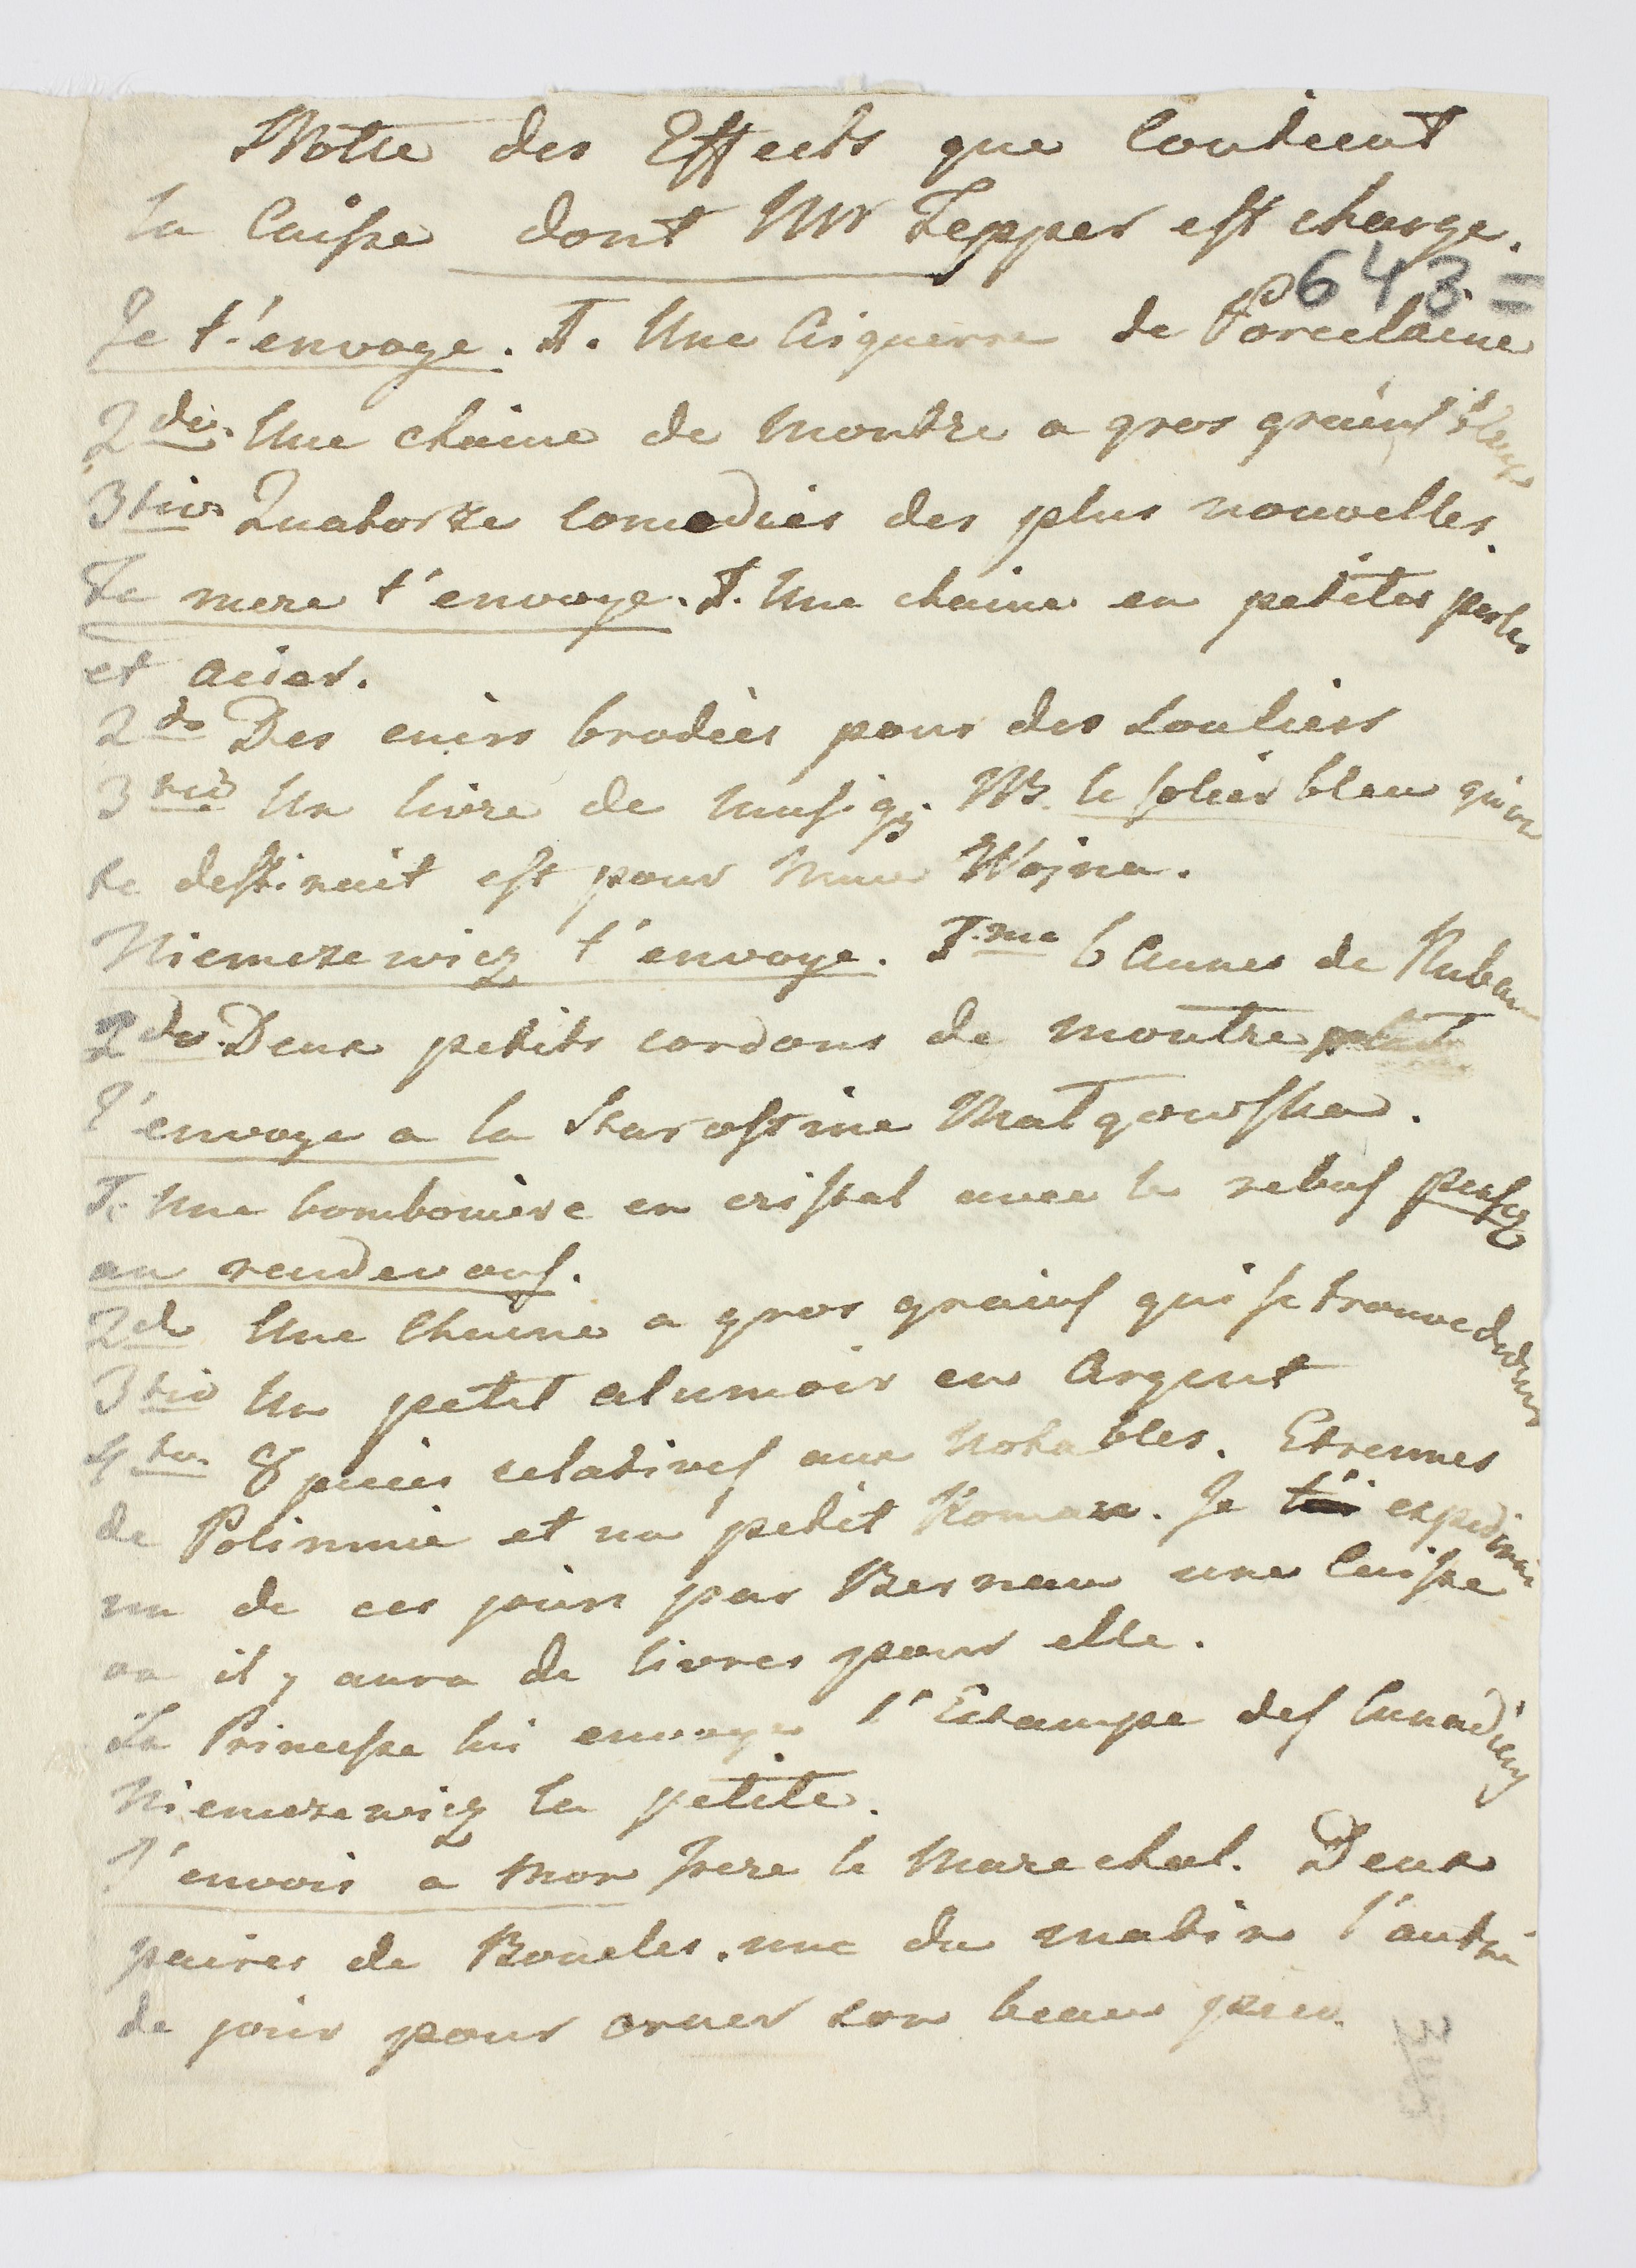 Notte des Effects que Contient
la Caisse dont Mr Tepper est charge.
643 =
Je t'envoye. I. Une Aiguerre de Porcelaine
2do. Une chaine de montre a gros grains bleus
3tio Quatorze comedies des plus nouvelles.
Ta mere t'envoye. I. Une chaine en petites perles
et acier.
2do Des cuirs brodées pour des souliers
3tio Un livre de musiq; NB. le solier bleu qu'on
te destinait est pour Mme Wojna.
Niemczewicz t'envoye. I.me 6 Aunes de Ruban
2do. Deux petits cordons de montre
J'envoye a la Starostine Malgowska.
I. Une bomboniere en cristal avec le rebus
au rendevous.
2do Une Chaine a gros grains qui se trouve dedans
3tio Un petit alumoir en Argent
4to. 8 pieces relatives aux Notables. Etrennes
de Polimnie et un petit Roman. Je expedirai
un de ces jours par Bernau une Caisse
ou il y aura de livres pour elle.
La Princesse lui envoye l'Estampe des Canadiens
Niemczewicz la petite.
J'envois a mon frere le Marechal. Deux
paires de Boucles. une du matin l'autre
de jour pour orner son beau pied.